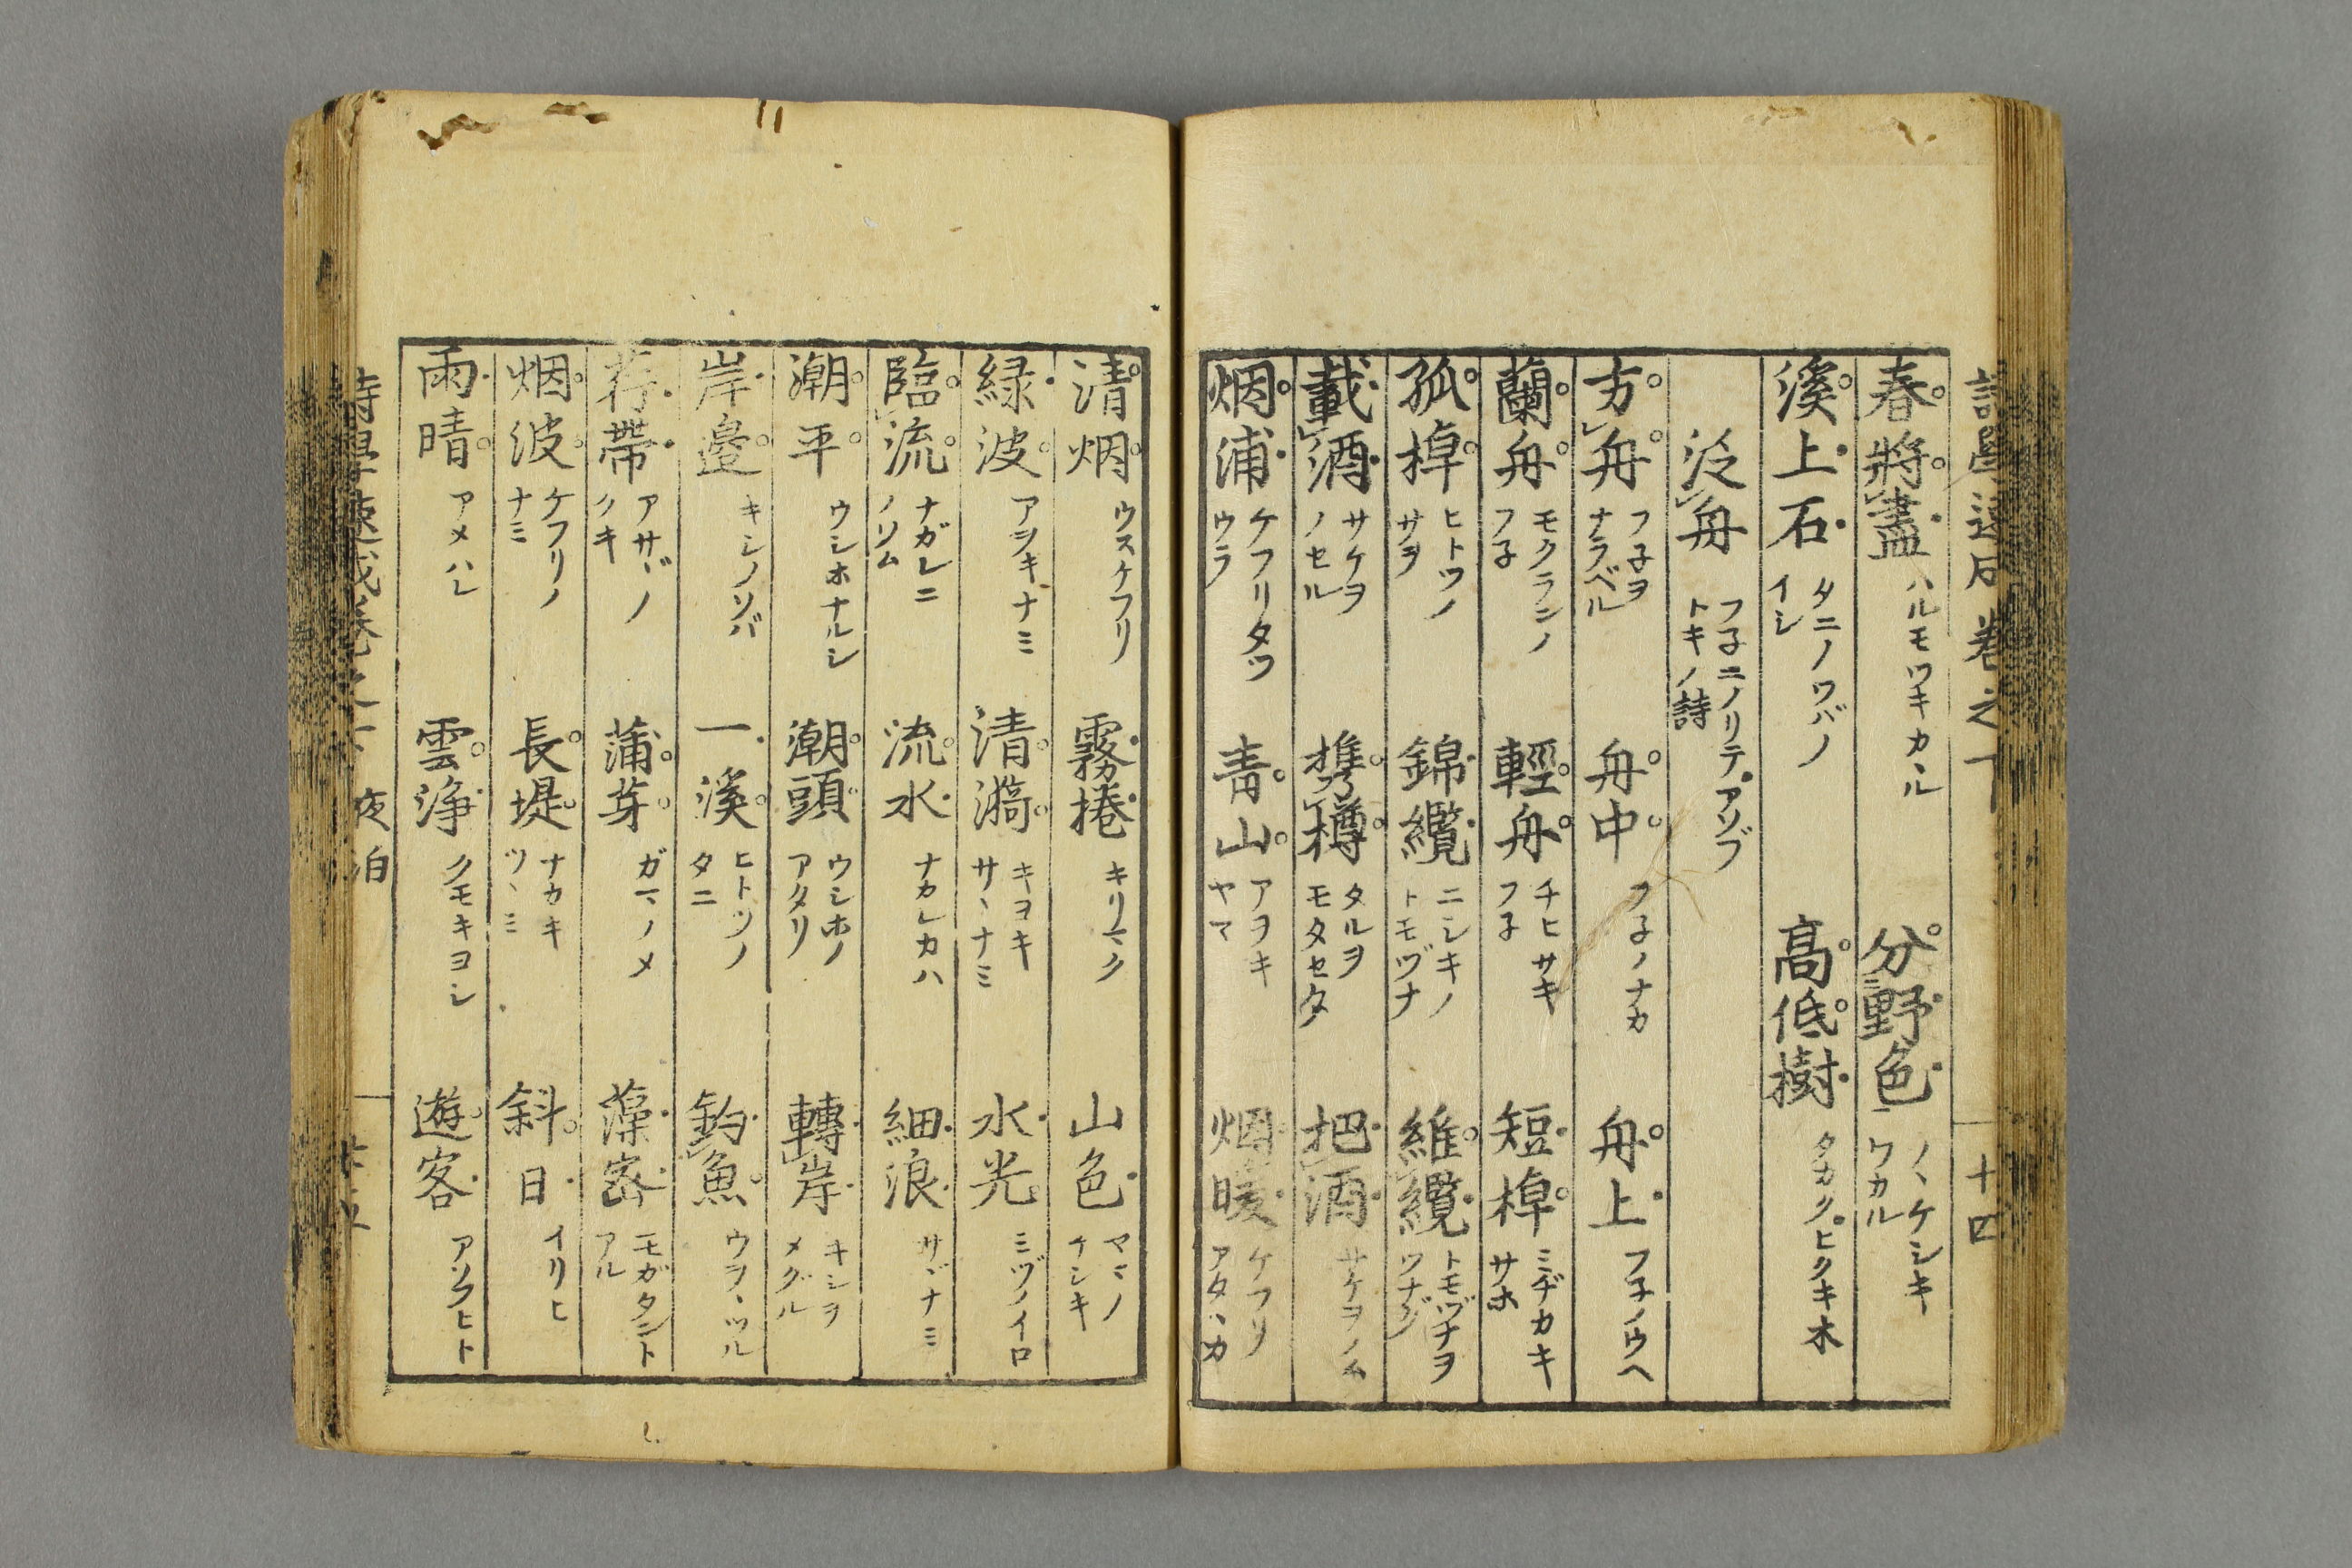 春將盡 ハルモツキカヽル 分野色 ノヽケシキワカル
溪上石 タニノワバノイシ 高低樹 タカクヒクキ木
泛舟 フ子ニノリテアソブトキノ詩
方舟 フ子ヲナラベル 舟中 フ子ノナカ 舟上 フ子ノウヘ
蘭舟 モクランノフ子 輕舟 チヒサキフ子 短棹 ミヂカキサホ
孤棹 ヒトツノサヲ 錦纜 ニシキノトモヅナ 維纜 トモヅナヲツナグ
載酒 サケヲノセル 携樽 タルヲモタセタ 把酒 サケヲノム
烟浦 ケフリタツウラ 青山 アヲキヤマ 烟暖 ケフリアタヽカ
十四
清烟 ウスケフリ 霧捲 キリマク 山色 ヤマノケシキ
緑波 アヲキナミ 清漪 キヨキサヽナミ 水光 ミヅノイロ
臨流 ナガレニノソム 流水 ナカレカハ 細浪 サヾナミ
潮平 ウシホナルシ 潮頭 ウシホノアタリ 轉岸 キシヲメグル
岸邉 キシノソバ 一溪 ヒトツノタニ 釣魚 ウヲヽツル
荇帶 アサヾノクキ 蒲芽 ガマノメ 藻密 モガタントアル
烟波 ケフリノナミ 長堤 ナカキツヽミ 斜日 イリヒ
雨晴 アメハレ 雲浄 クモキヨシ 遊客 アソフヒト
夜泊